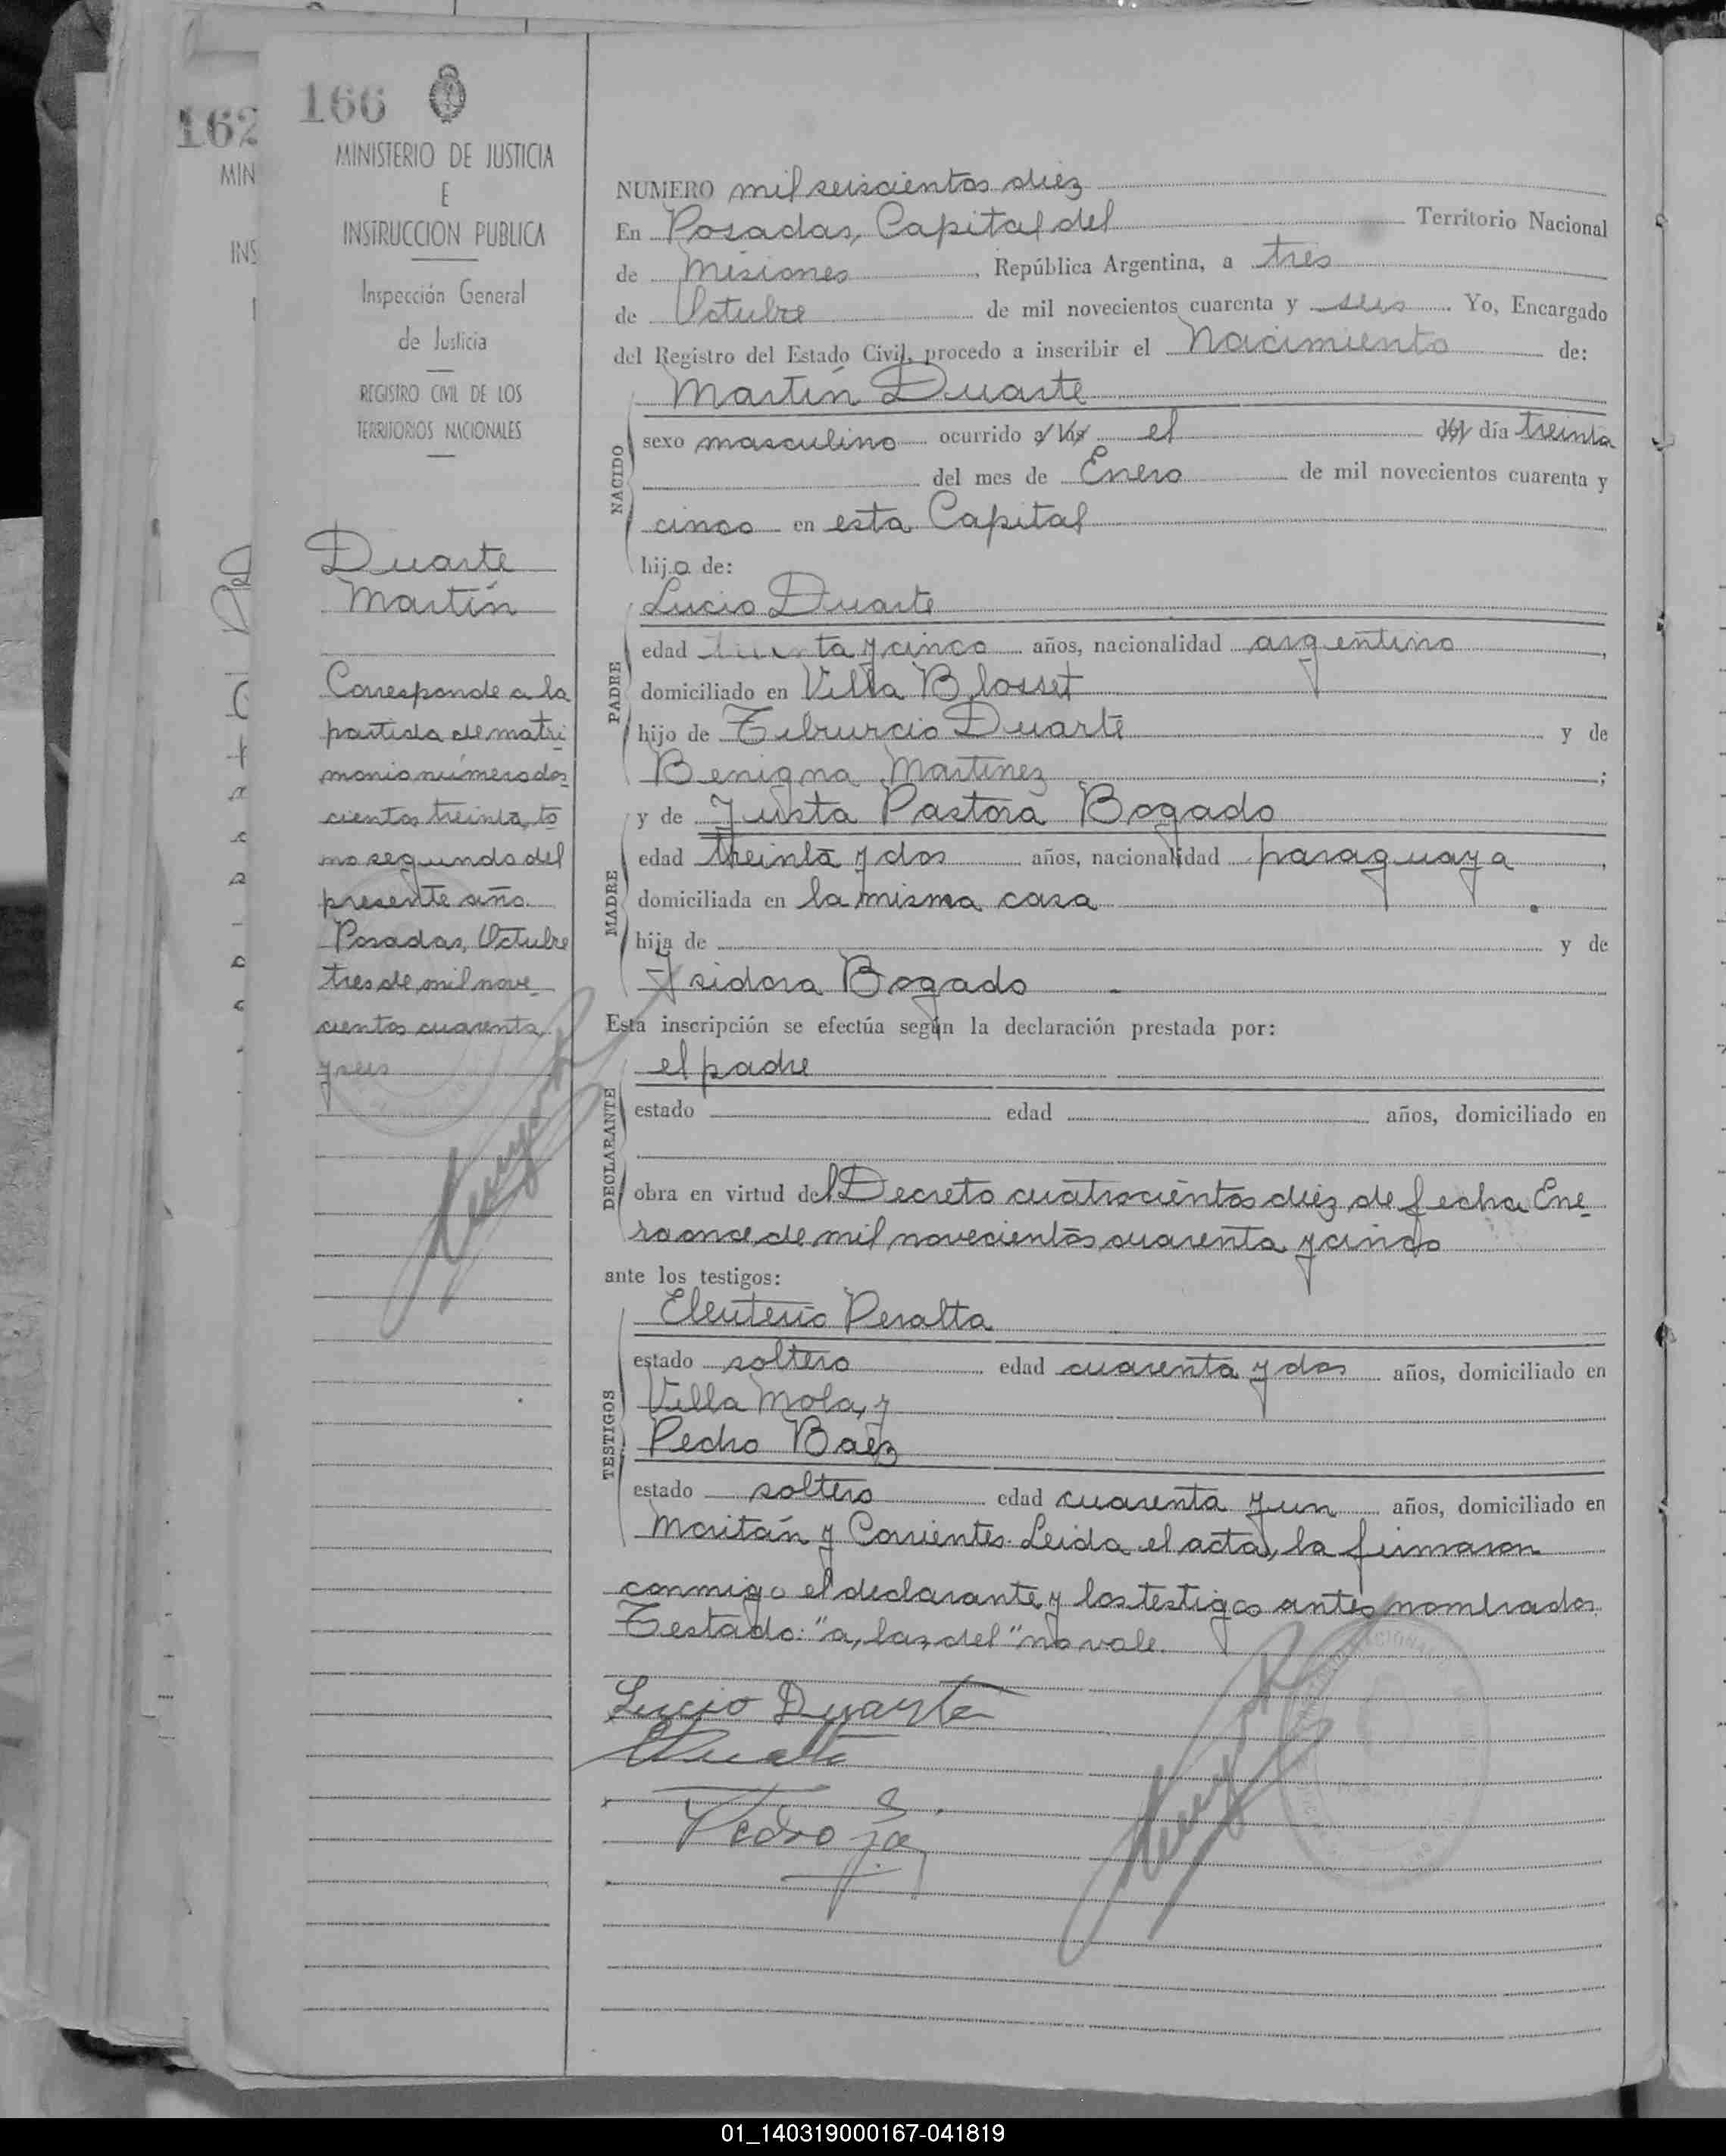 166
162
MINISTERIO DE JUSTICIA
E
INSTRUCCION PUBLICA
Inspección General
de Justicia
REGISTRO CIVIL DE LOS
TERRITORIOS NACIONALES
MIN
INS
Duarte
Martín
Corresponde a la
partida de matri
monio número dos
cientos treinta, to
mo segundo del
presente año.
Posadas, Octubre
tres de mil nove
cientos cuarenta
y seis
NUMERO mil seiscientos diez
En Posadas, Capital del Territorio Nacional
de Misiones, República Argentina, a tres
de Octubre de mil novecientos cuarenta y seis Yo, Encargado
del Registro del Estado Civil, procedo a inscribir el Nacimiento de:
Martín Duarte
NACIDO
sexo masculino ocurrido a las el del día treinta
del mes de Enero de mil novecientos cuarenta y
cinco en esta Capital
hijo de:
Lucio Duarte
PADRE
edad treinta y cinco años, nacionalidad argentino,
domiciliado en Villa Blosset
hijo de Tiburcio Duarte y de
Benigna Martinez;
y de Justa Pastora Bogado
MADRE
edad treinta y dos años, nacionalidad paraguaya,
domiciliada en la misma casa
hija de y de
Isidora Bogado
Esta inscripción se efectúa según la declaración prestada por:
el padre
DECLARANTE
estado edad años, domiciliado en
obra en virtud del Decreto cuatrocientos diez de fecha Ene-
ro once de mil novecientos cuarenta y cinco
ante los testigos:
Eleuterio Peralta
TESTIGOS
estado soltero edad cuarenta y dos años, domiciliado en
Villa Mola, y
Pedro Baez
estado soltero edad cuarenta y un años, domiciliado en
Moritán y Corrientes. Leida el acta, la firmaron
conmigo el declarante y los testigos antes nombrados.
Testado: "a, las, del" no vale.
Lucio Duarte
Pedro
01_140319000167-041819